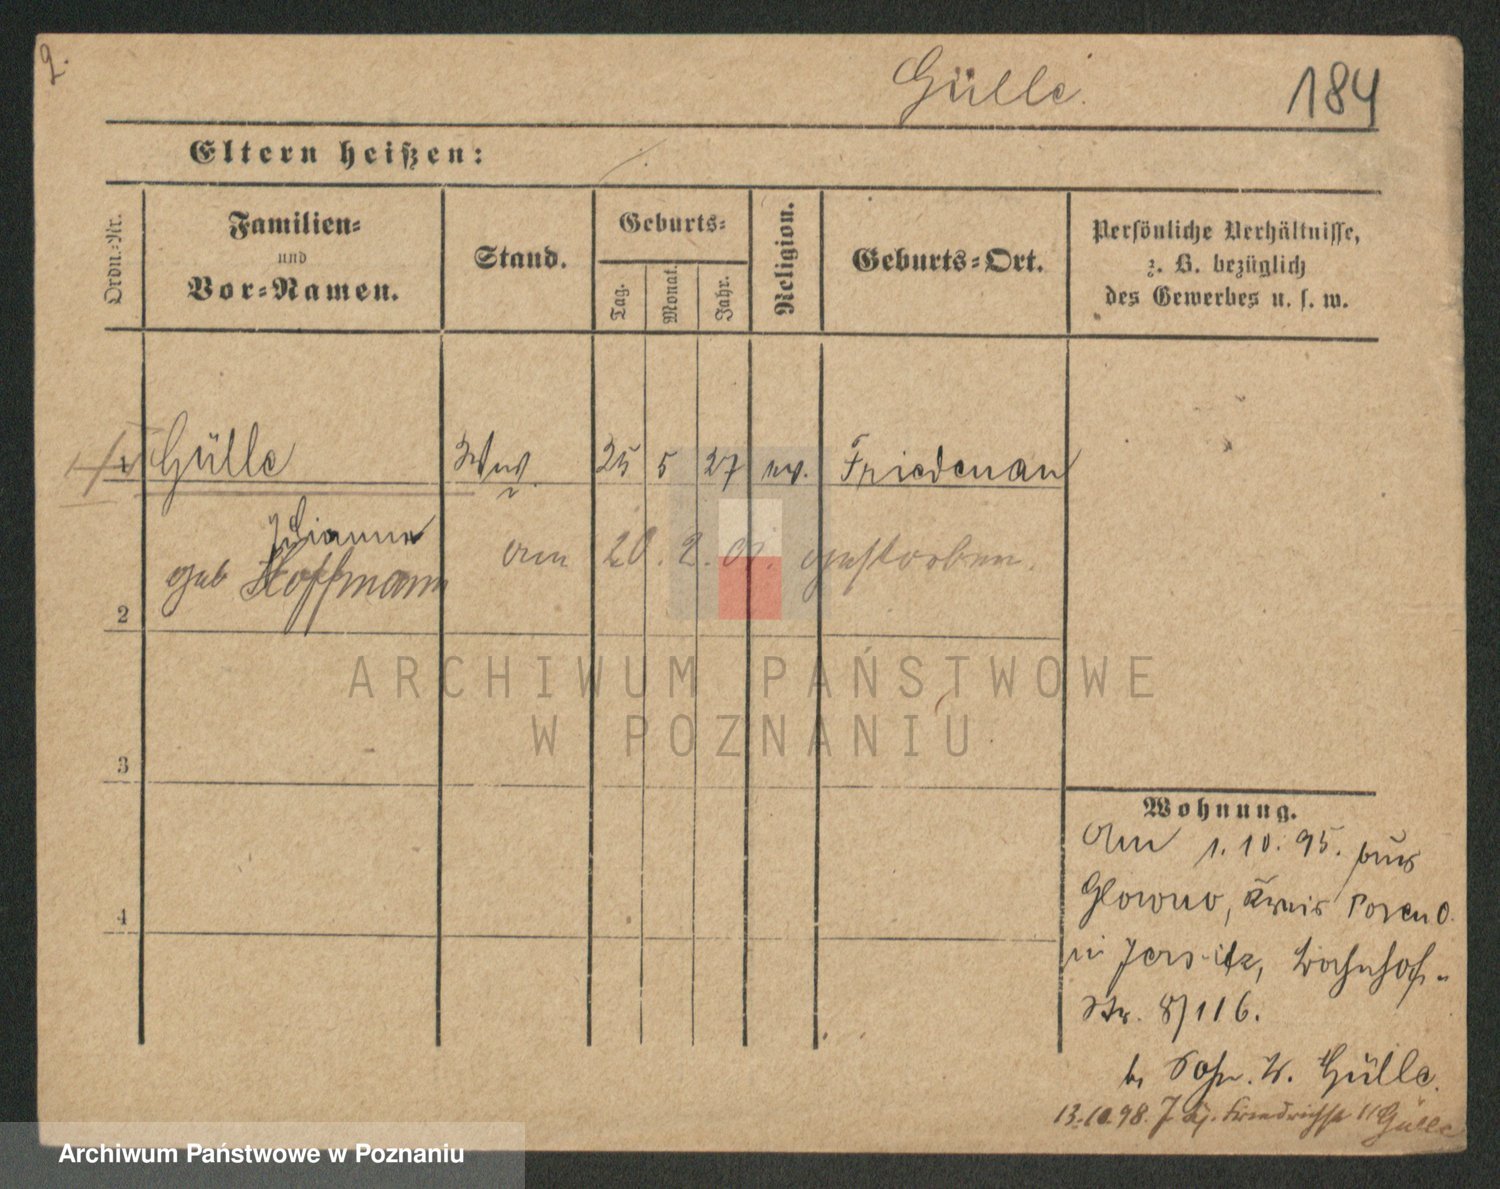 g.
Gülle.
184
Eltern heißen:
Ordn.-Nr.
Familien-
und
Vor-Namen.
Stand.
Geburts-
Tag.
Monat.
Jahr.
Religion.
Geburts-Ort.
Persönliche Verhältnisse,
z. B. bezüglich
des Gewerbes u. s. w.
1 Gülle Wwe. 25 5 27 ev. Friedenau
Julianne
geb Hoffmann
am 20. 2. 01. gestorben.
2
3
4
ARCHIWUM PAŃSTWOWE
W POZNANIU
Wohnung.
Am 1. 10. 95. aus
Glowno, Kreis Posen O.
in Jersitz, Bahnhof-
Str. 8/116.
b. Sohn. W. Gülle.
13.10.98. J. Friedrichstr 11 Gülle
Archiwum Państwowe w Poznaniu